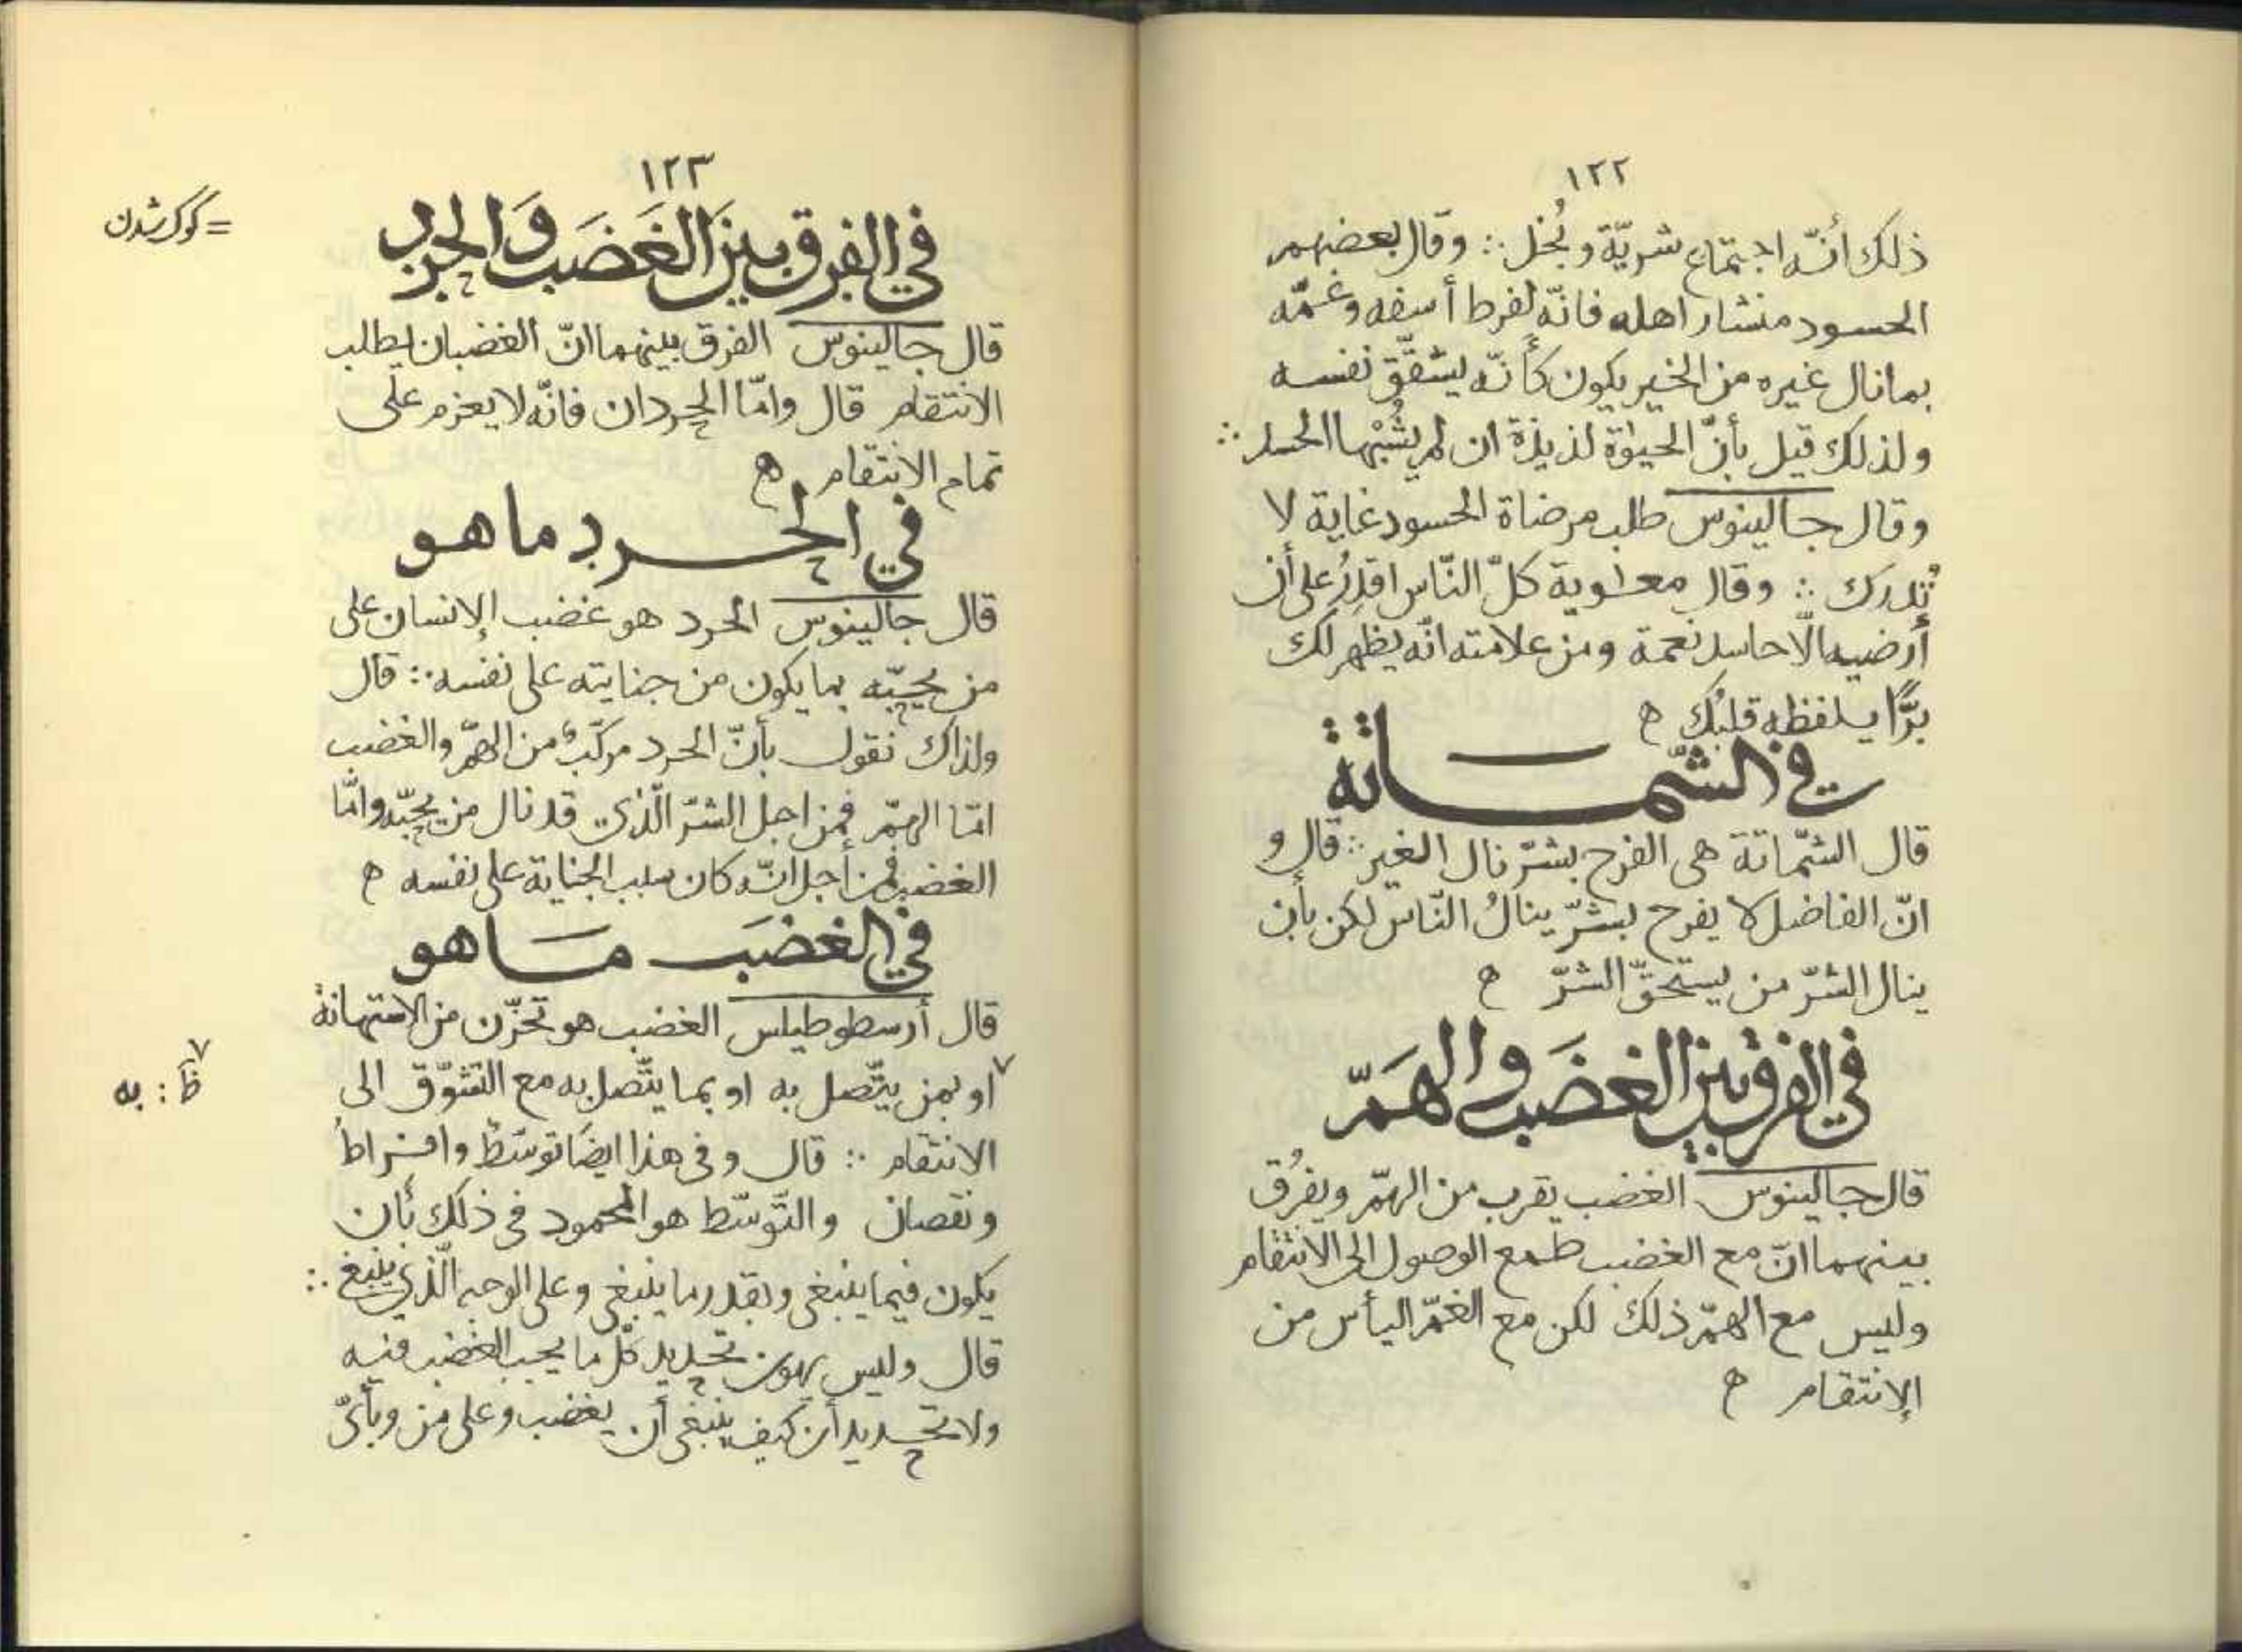 ١٢٢
ذلك أنّه اجتماع شريّة وبُخل ∴ وقال بعضهم
الحسود منشار اهله فانّه لفرط أسفه وغمّه
بما نال غيره من الخير يكون كأنّه يشقّق نفسه
ولذلك قيل بأنّ الحيوٰة لذيذة ان لم يشُبْها الحسد ∴
وقال جالينوس طلب مرضاة الحسود غاية لا
تُدرك ∴ وقال معٰوية كلّ النّاس اقدِرُ على أن
أرضيه الّا حاسد نعمة ومن علامته انّه يظهر لك
برًّا يلفظه قلبُك ه
في الشّمَاتة
قال الشّماتة هى الفرح بشرّ نال الغير ∴ قال و
انّ الفاضل لا يفرح بشرّ ينالُ النّاس لكن بأن
ينال الشرّ من يستحقّ الشرّ ه
في الفرق بين الغضَب والهَمّ
قال جالينوس الغضب يقرب من الهمّ ويفرُق
بينهما انّ مع الغضب طمع الوصول الى الانتقام
وليس مع الهمّ ذلك لكن مع الغمّ اليأس من
الإنتقام ه
١٢٣
في الفرق بينَ الغَضَب وَالحرد
= گوگ شدن
قال جالينوس الفرق بينهما انّ الغضبان يطلب
الانتقام قال وامّا الحردان فانّه لا يعزم على
تمام الانتقام ه
في الحرد ما هو
قال جالينوس الحرد هو غضب الإنسان على
من يحبّه بما يكون من جنايته على نفسه ∴ قال
ولذاك نقول بأنّ الحرد مركّبٌ من الهمّ والغضب
امّا الهمّ فمن اجل الشرّ الّذى قد نال من يحبّه وامّا
الغضب فمن أجل انّه كان سبب الجناية على نفسه ه
في الغضَب مَا هو
قال أرسطوطيلس الغضب هو تحزّن من الاستهانة
٧ او بمن يتّصل به او بما يتّصل به مع التشوّق الى
٧ ظ : به
الانتقام ∴ قال وفى هذا ايضًا توسّطٌ وافراطٌ
ونقصان والتّوسّط هو المحمود فى ذلك بأن
يكون فيما ينبغى وبقدر ما ينبغى وعلى الوجه الّذى ينبغى ∴
قال وليس يهون تحديد كلّ ما يجب الغضب فيه
ولا تحديد أن كيف ينبغى أن يغضب وعلى من وبأىّ